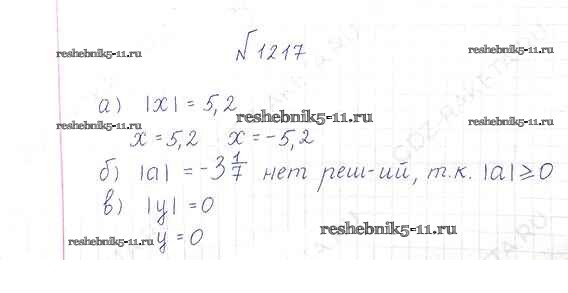 №1217
reshebnik5-11.ru
reshebnik5-11.ru
а) |x| = 5,2
reshebnik5-11.ru
reshebnik5-11.ru
reshebnik5-11.ru
x = 5,2 x = -5,2
б) |a| = -3 1/7 нет реш-ий, т.к. |a| ≥ 0
в) |y| = 0
reshebnik5-11.ru
y = 0
reshebnik5-11.ru